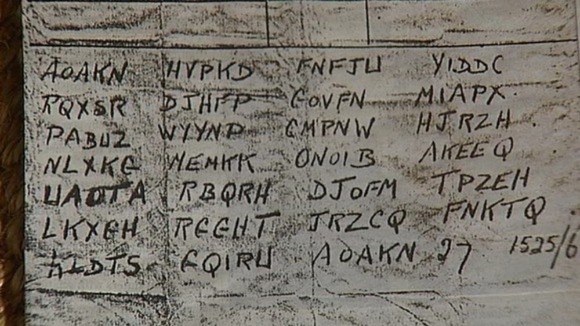 AOAKN HVPKD FNFJW YIDDC
RQXSR DJHFP GOVFN MIAPX
PABUZ WYYNP CMPNW HJRZH
NLXKG MEMKK ONOIB AKEEQ
UAOTA RBQRH DJOFM TPZEH
LKXGH RGGHT JRZCQ FNKTQ
KLDTS FQIRU AOAKN 27 1525/6